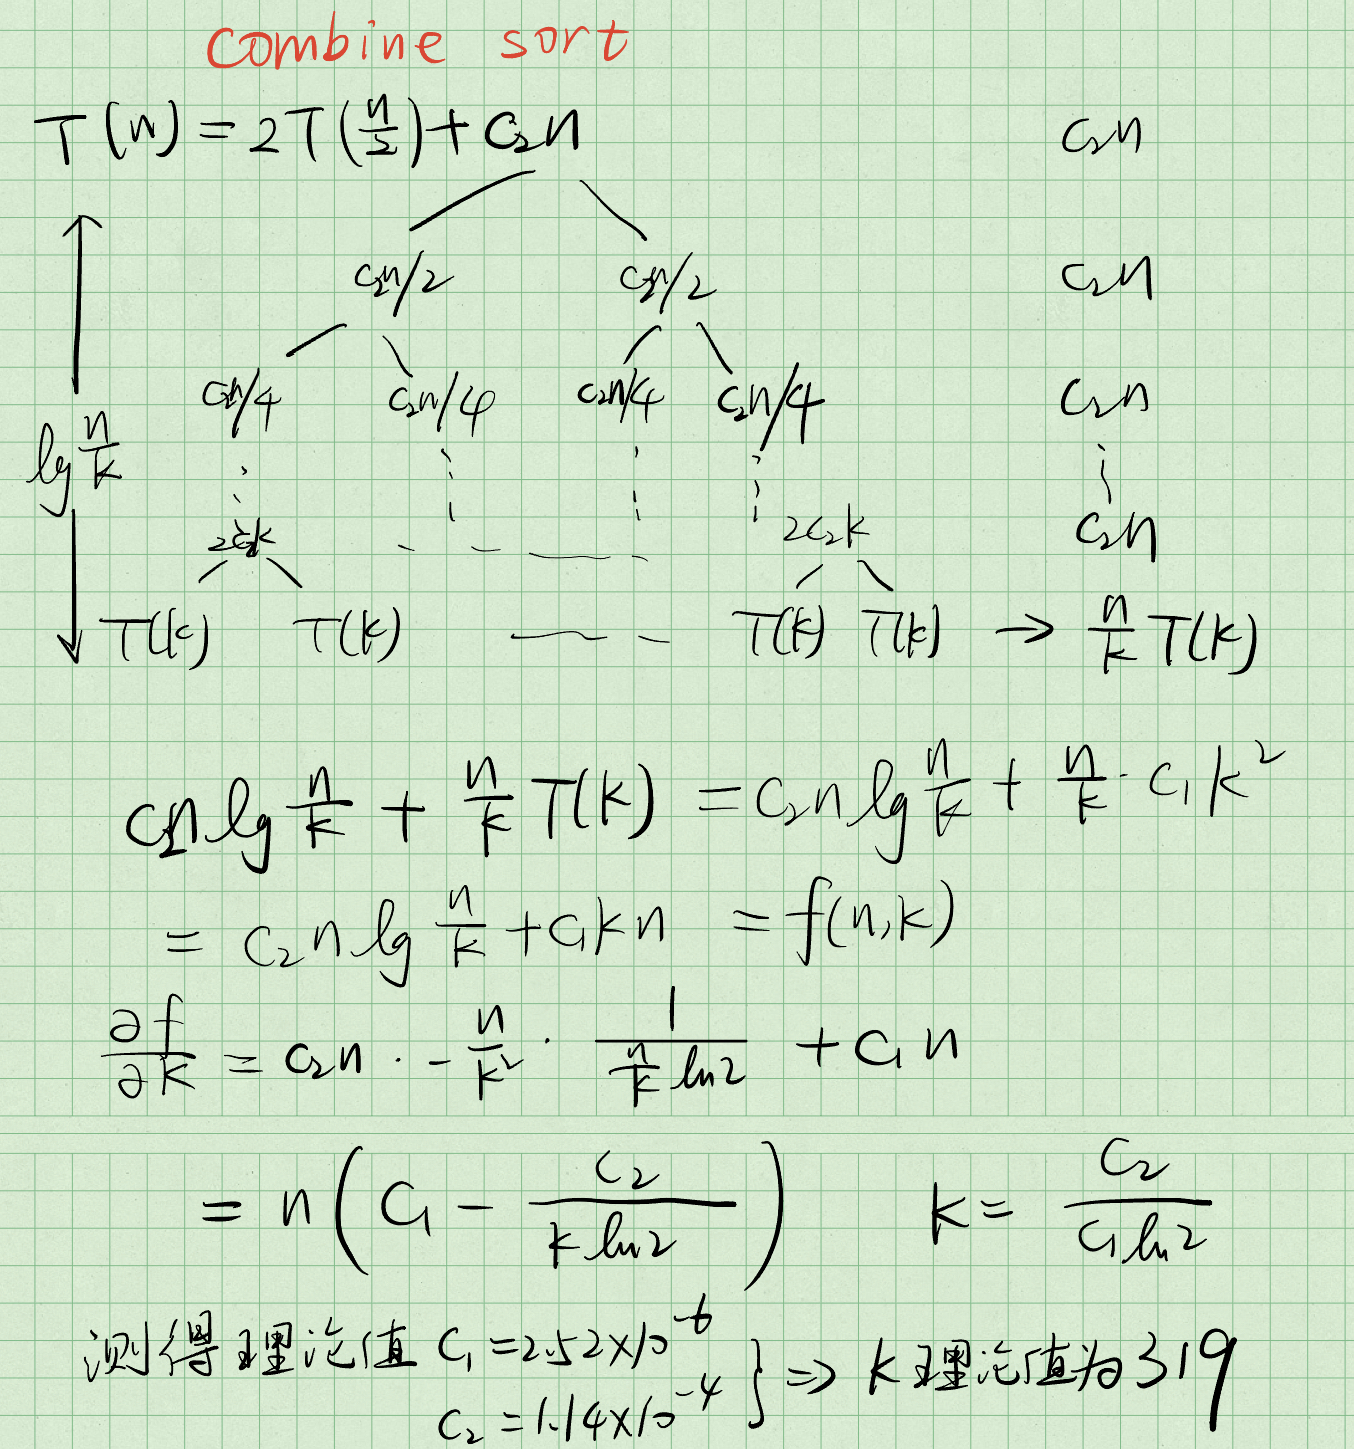 Combine sort
T(n) = 2T(n/2) + c₂n    c₂n
c₂n/2    c₂n/2    c₂n
c₂n/4    c₂n/4    c₂n/4    c₂n/4    c₂n
lg n/k
2c₂k    2c₂k    c₂n
T(k)    T(k)    T(k)    T(k) → n/k T(k)
c₂n lg n/k + n/k T(k) = c₂n lg n/k + n/k · c₁k²
= c₂n lg n/k + c₁kn = f(n,k)
∂f/∂k = c₂n · -n/k² · 1/(n/k ln2) + c₁n
= n(c₁ - c₂/(k ln2))    k = c₂/(c₁ln2)
测得理论值 c₁ = 2.52×10⁻⁶ } ⇒ k理论值为319
c₂ = 1.14×10⁻⁴